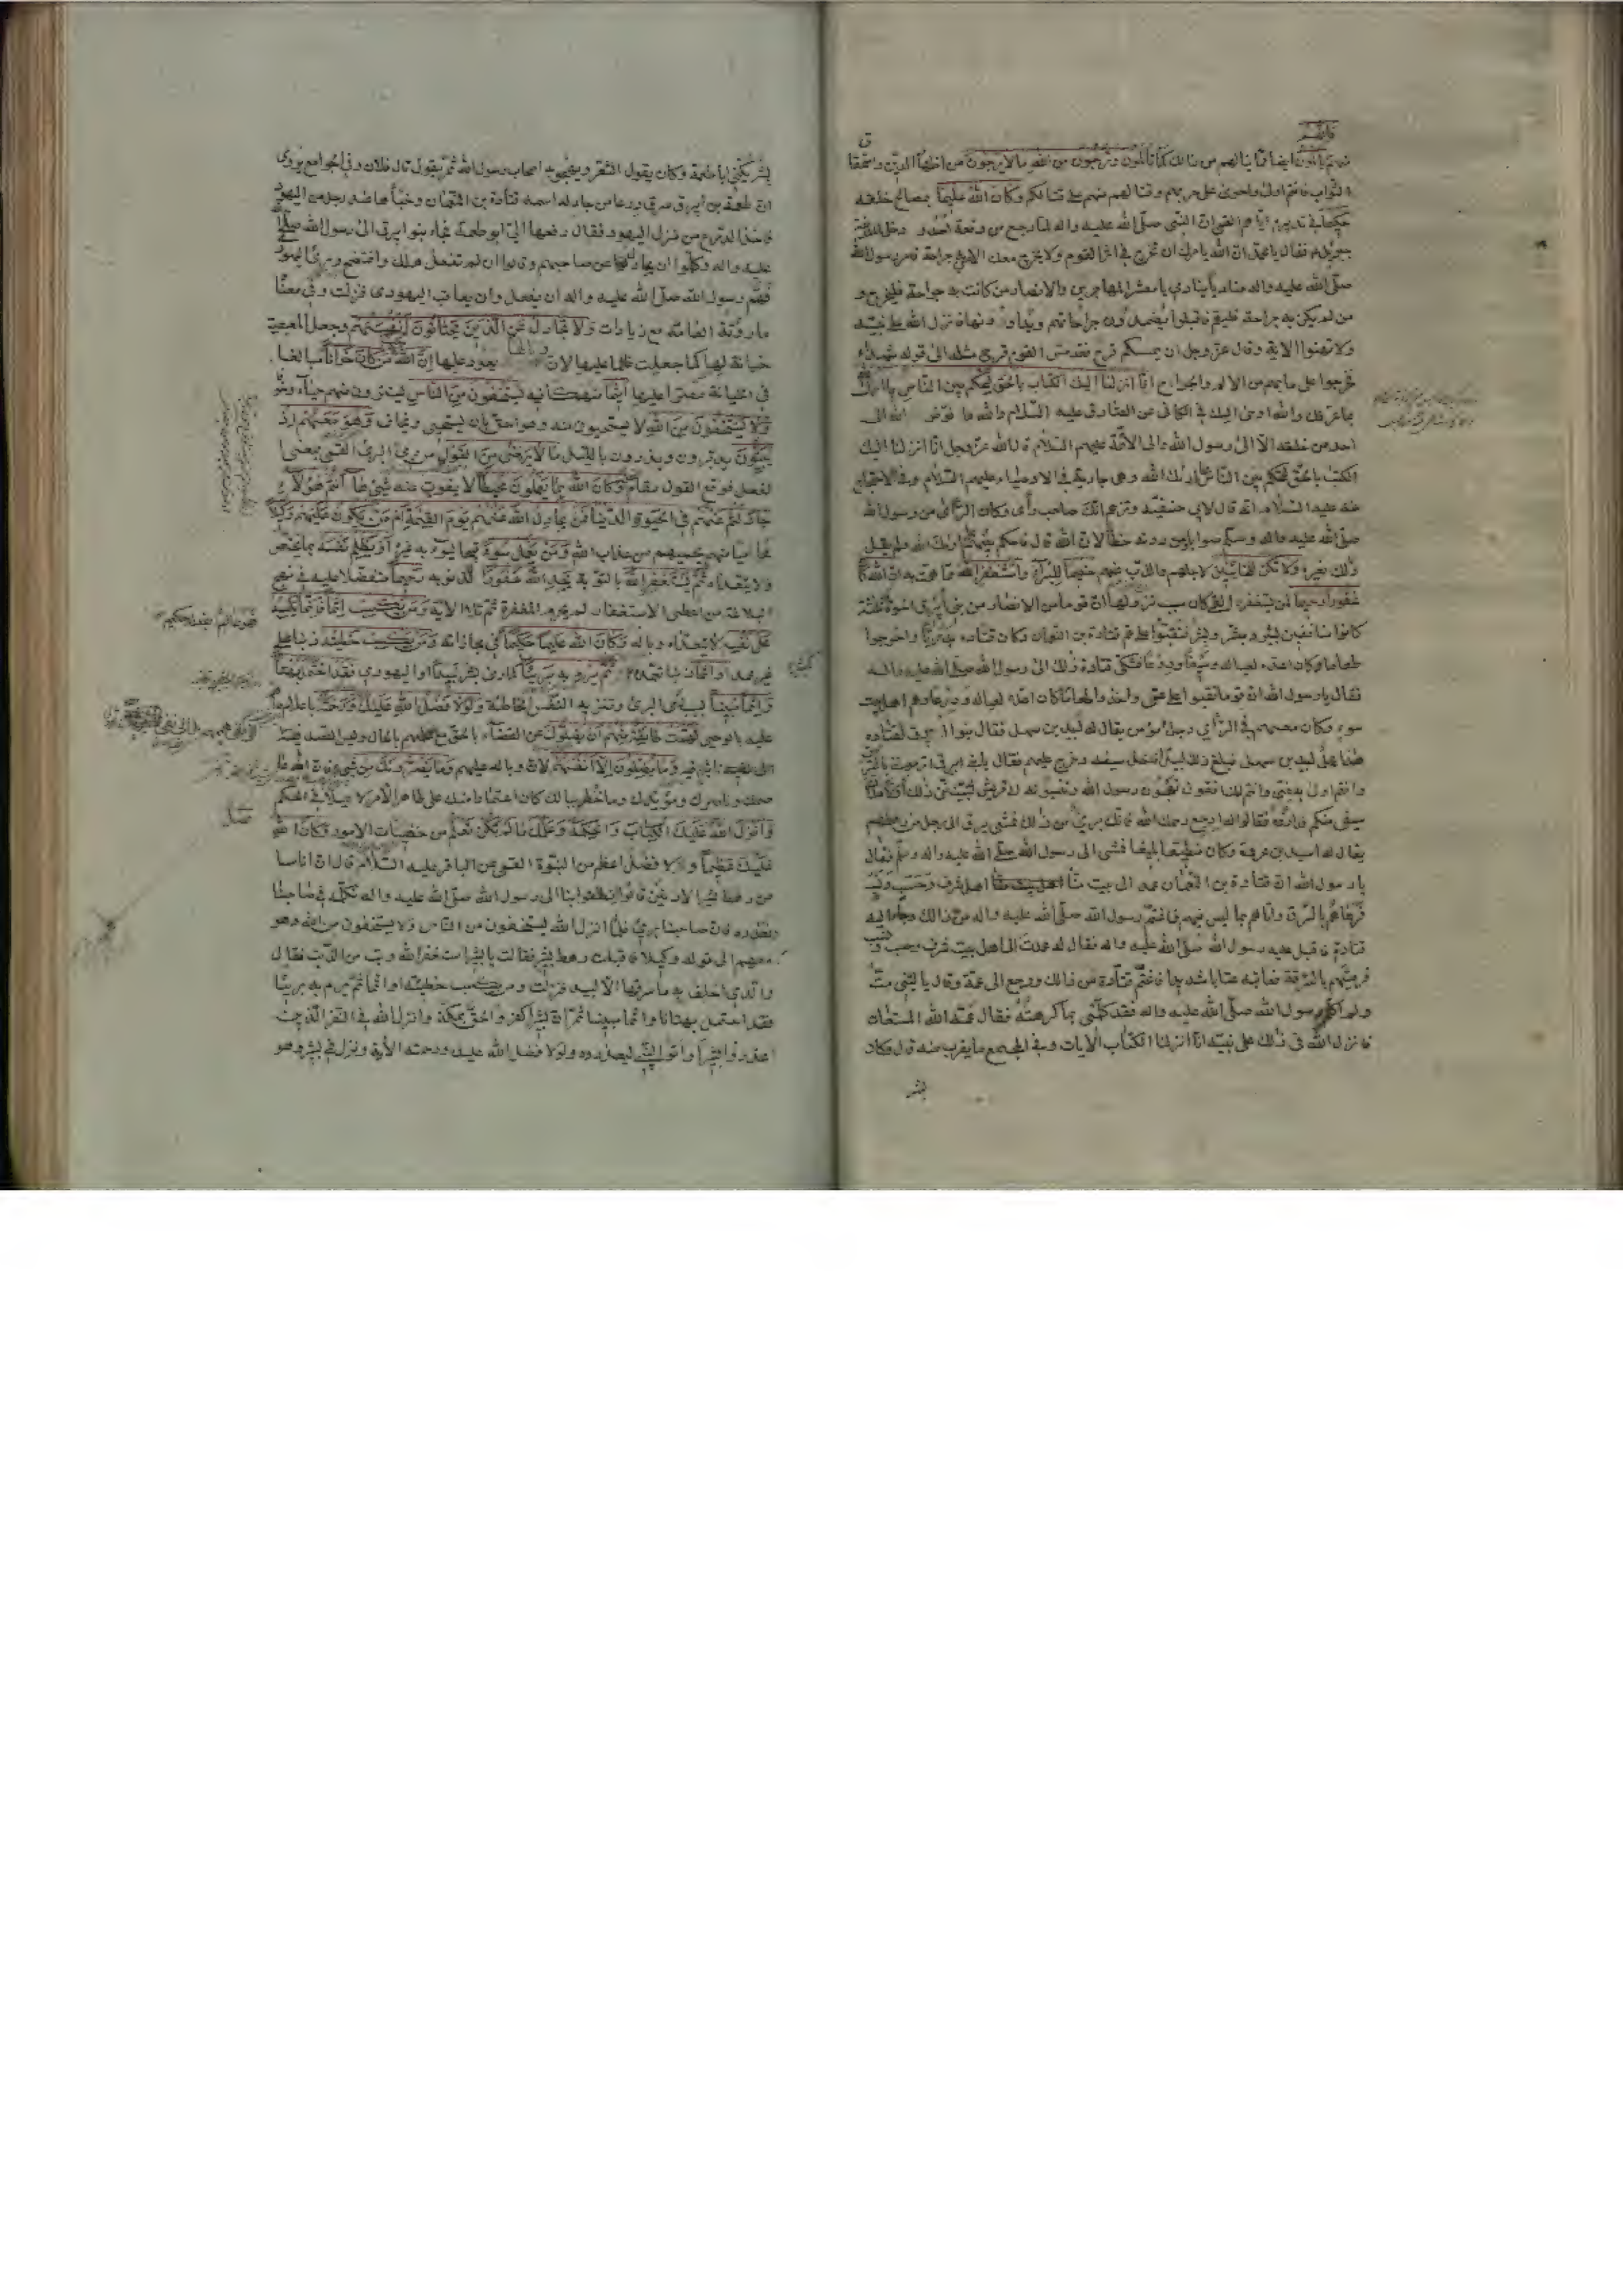 فانهم
يألمون ايضا مما ينالهم من ذلك كما تألمون وترجون من الله ما لا يرجون من اظهار الدين واستحقاق
الثواب فانتم اولى واحرى على حربهم وقتالهم منهم على قتالكم وكان الله عليما بمصالح خلقه
حكيما في تدبيره اياهم القمي ان النبي صلى الله عليه واله لما رجع من وقعة احد و دخل المدينة
جبرئيل فقال يا محمد ان الله يامرك ان تخرج في اثر القوم ولا يخرج معك الا من به جراحة فامر رسول الله
صلى الله عليه واله مناديا ينادي يا معشر المهاجرين والانصار من كانت به جراحة فليخرج و
من لم يكن به جراحة فليقم فاقبلوا يضمدون جراحاتهم ويداوونها فانزل الله على نبيه
ولا تهنوا الاية وقال عز وجل ان يمسسكم قرح فقد مس القوم قرح مثله الى قوله شهداء
فخرجوا على ما بهم من الالم والجراح انا انزلنا اليك الكتاب بالحق لتحكم بين الناس بما اراك الله
بما عرفك والله اوحى اليك في الكافي عن الصادق عليه السلام والله ما فوض الله الى
احد من خلقه الا الى رسول الله والى الائمة عليهم السلام قال الله عز وجل انا انزلنا اليك
الكتب بالحق لتحكم بين الناس بما اراك الله وهي جارية في الاوصياء عليهم السلام وفي الاحتجاج
عنه عليه السلام انه قال لابي حنيفة وتزعم انك صاحب رأى وكان الرأى من رسول الله
صلى الله عليه واله وسلم صوابا ومن دونه خطأ لان الله قال فاحكم بينهم بما اراك الله ولم يقل
ذلك لغيره ولا تكن للخائنين لاجلهم والذب عنهم خصيما للبرآء واستغفر الله مما هممت به ان الله كان
غفورا رحيما لمن يستغفره القمي كان سبب نزولها ان قوما من الانصار من بني ابيرق اخوة ثلثة
كانوا منافقين بشير وبشر ومبشر فنقبوا على عم قتادة بن النعمان وكان قتادة بدريا واخرجوا
طعاما وكان اعده لعياله وسيفا ودرعا فشكى قتادة ذلك الى رسول الله صلى الله عليه واله
فقال يا رسول الله ان قوما نقبوا على عمي واخذوا طعاما كان اعده لعياله ودرعا وهم اهل بيت
سوء وكان معهم في الرأي رجل مؤمن يقال له لبيد بن سهل فقال بنوا ابيرق لقتاده
هذا عمل لبيد بن سهل فبلغ ذلك لبيدا فاخذ سيفه وخرج عليهم فقال يا بني ابيرق اترمونني بالسرق
وانتم اولى به مني وانتم المنافقون تهجون رسول الله وتنسبونه الى قريش لتبينن ذلك او لاملأن
سيفي منكم فداروه فقالوا له ارجع رحمك الله فانك بريء من ذلك فمشى بنو ابيرق الى رجل من رهطهم
يقال له اسيد بن عروة وكان منطيقا بليغا فمشى الى رسول الله صلى الله عليه واله وسلم فقال
يا رسول الله ان قتادة بن النعمان عمد الى اهل بيت منا اهل شرف وحسب ونسب
فرماهم بالسرق واتاهم بما ليس فيهم فاغتم رسول الله صلى الله عليه واله من ذلك وجاء اليه
قتادة فاقبل عليه رسول الله صلى الله عليه واله فقال له عمدت الى اهل بيت شرف وحسب ونسب
فرميتهم بالسرقة فعاتبه عتابا شديدا فاغتم قتادة من ذلك ورجع الى عمه وقال يا ليتني مت
ولم اكلم رسول الله صلى الله عليه واله فقد كلمني بما كرهته فقال عمه الله المستعان
فانزل الله في ذلك على نبيه انا انزلنا الكتاب الايات وفي المجمع ما يقرب منه قال وكان
بشير
بشير يكنى ابا طعمة وكان يقول الشعر ويهجو به اصحاب رسول الله ثم يقول قال فلان وفي الجوامع يروى
ان طعمة بن ابيرق سرق درعا من جار له اسمه قتادة بن النعمان وخبأها عند رجل من اليهود
فاخذ الدرع من منزل اليهود فقال دفعها الي ابو طعمة فجاء بنو ابيرق الى رسول الله صلى الله
عليه واله وكلموا ان يجادل عن صاحبهم وقالوا ان لم تفعل هلك وافتضح وبرئ اليهودي
فهم رسول الله صلى الله عليه واله ان يفعل وان يعاقب اليهودى فنزلت وفي معناه
ما روته العامة مع زيادات ولا تجادل عن الذين يختانون انفسهم وجعل المعصية
خيانة لها كما جعلت ظلما عليها لان وبالها يعود عليها ان الله لا يحب من كان خوانا مبالغا
في الخيانة مصرا عليها اثيما منهمكا فيه يستخفون من الناس يستترون منهم حياء وخوفا
ولا يستخفون من الله لا يستحيون منه وهو احق بان يستحيى ويخاف وهو معهم اذ
يبيتون يدبرون ويزورون بالليل ما لا يرضى من القول من رمي البرئ القمي يعني
الفعل فوقع القول مقام الفعل وكان الله بما يعملون محيطا لا يفوت عنه شيء ها انتم هؤلاء
جادلتم عنهم في الحيوة الدنيا فمن يجادل الله عنهم يوم القيمة ام من يكون عليهم وكيلا
محاميا عنهم يحميهم من عذاب الله ومن يعمل سوءا قبيحا يسوء به غيره او يظلم نفسه بما يختص
ولا يتعداه ثم يستغفر الله بالتوبة يجد الله غفورا لذنوبه رحيما متفضلا عليه في نهج
البلاغة من اعطى الاستغفار لم يحرم المغفرة ثم تلا الاية ومن يكسب اثما فانما يكسبه
على نفسه لا يتعداه وباله وكان الله عليما حكيما في مجازاته ومن يكسب خطيئة ذنبا على
غير عمد او اثما ذنبا تعمده ثم يرم به بريئا كما رمى بشير لبيدا او اليهودي فقد احتمل بهتانا
واثما مبينا بسبب رمى البرئ وتنزيه النفس الخاطئة ولولا فضل الله عليك ورحمته باعلام ما
عليه بالوحى لهمت طائفة منهم ان يضلوك عن القضاء بالحق مع علمهم بالحال
وما يضلون الا انفسهم لان وباله عليهم وما يضرونك من شيء فان الله
عاصمك وناصرك ومؤيدك وما خطر ببالك كان اعتمادا منك على ظاهر الامر لا ميلا في الحكم
وانزل الله عليك الكتاب والحكمة وعلمك ما لم تكن تعلم من خفيات الامور وكان فضل الله
عليك عظيما ولا فضل اعظم من النبوة القمي عن الباقر عليه السلام قال ان اناسا
من رهط بشير الادنين قالوا انطلقوا بنا الى رسول الله صلى الله عليه واله نكلمه في صاحبنا
ونعذره فان صاحبنا بريء فلما انزل الله يستخفون من الناس ولا يستخفون من الله وهو
معهم الى قوله وكيلا فاقبلت رهط بشير فقالت يا بشير استغفر الله وتب من الذنب فقال
والذي احلف به ما سرقها الا لبيد فنزلت ومن يكسب خطيئة او اثما ثم يرم به بريئا
فقد احتمل بهتانا واثما مبينا ثم ان بشيرا كفر ولحق بمكة وانزل الله في النفر الذين
اعذروا بشيرا واتوا النبي ليعذروه ولولا فضل الله عليك ورحمته الاية ونزل في بشير وهو